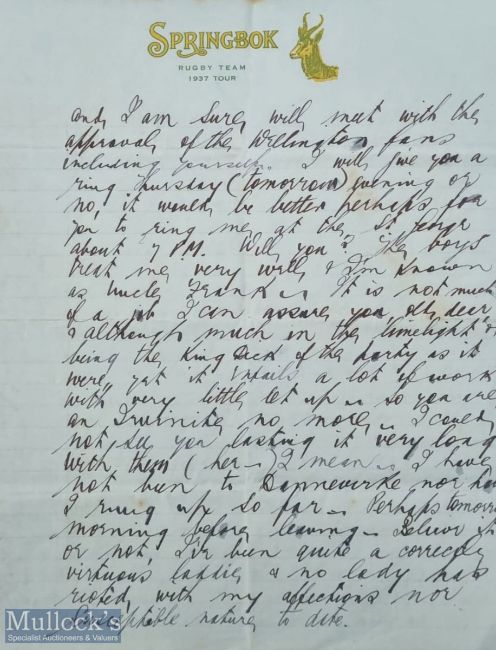 SPRINGBOK
RUGBY TEAM
1937 TOUR
and, I am sure, will meet with the
approval, of the Wellington fans
including yourself. I will give you a
ring Thursday (tomorrow) evening or
no, it would be better perhaps for
you to ring me at the St. George
about 7 P.M. Will you? The boys
treat me very well, & I'm known
as Uncle Frank. It is not much
of a job I can assure you old dear
& although much in the limelight &
being the King of the party as it
were, yet it entails a lot of work
with very little let up so you are
an no more. I could
not see you lasting it very long
with them (her) I mean. I have
not been to Dannevirke nor have
I rung up so far. Perhaps tomorrow
morning before leaving. Believe it
or not, I've been quite a correctly
virtuous laddie, & no lady has
with my affections nor
nature to date.
Mullock's
Specialist Auctioneers & Valuers